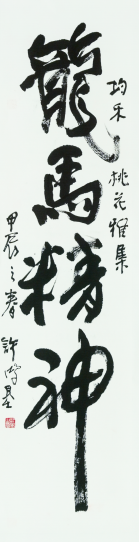 均禾桃花雅集
龍馬精神
甲辰之春 許鴻基